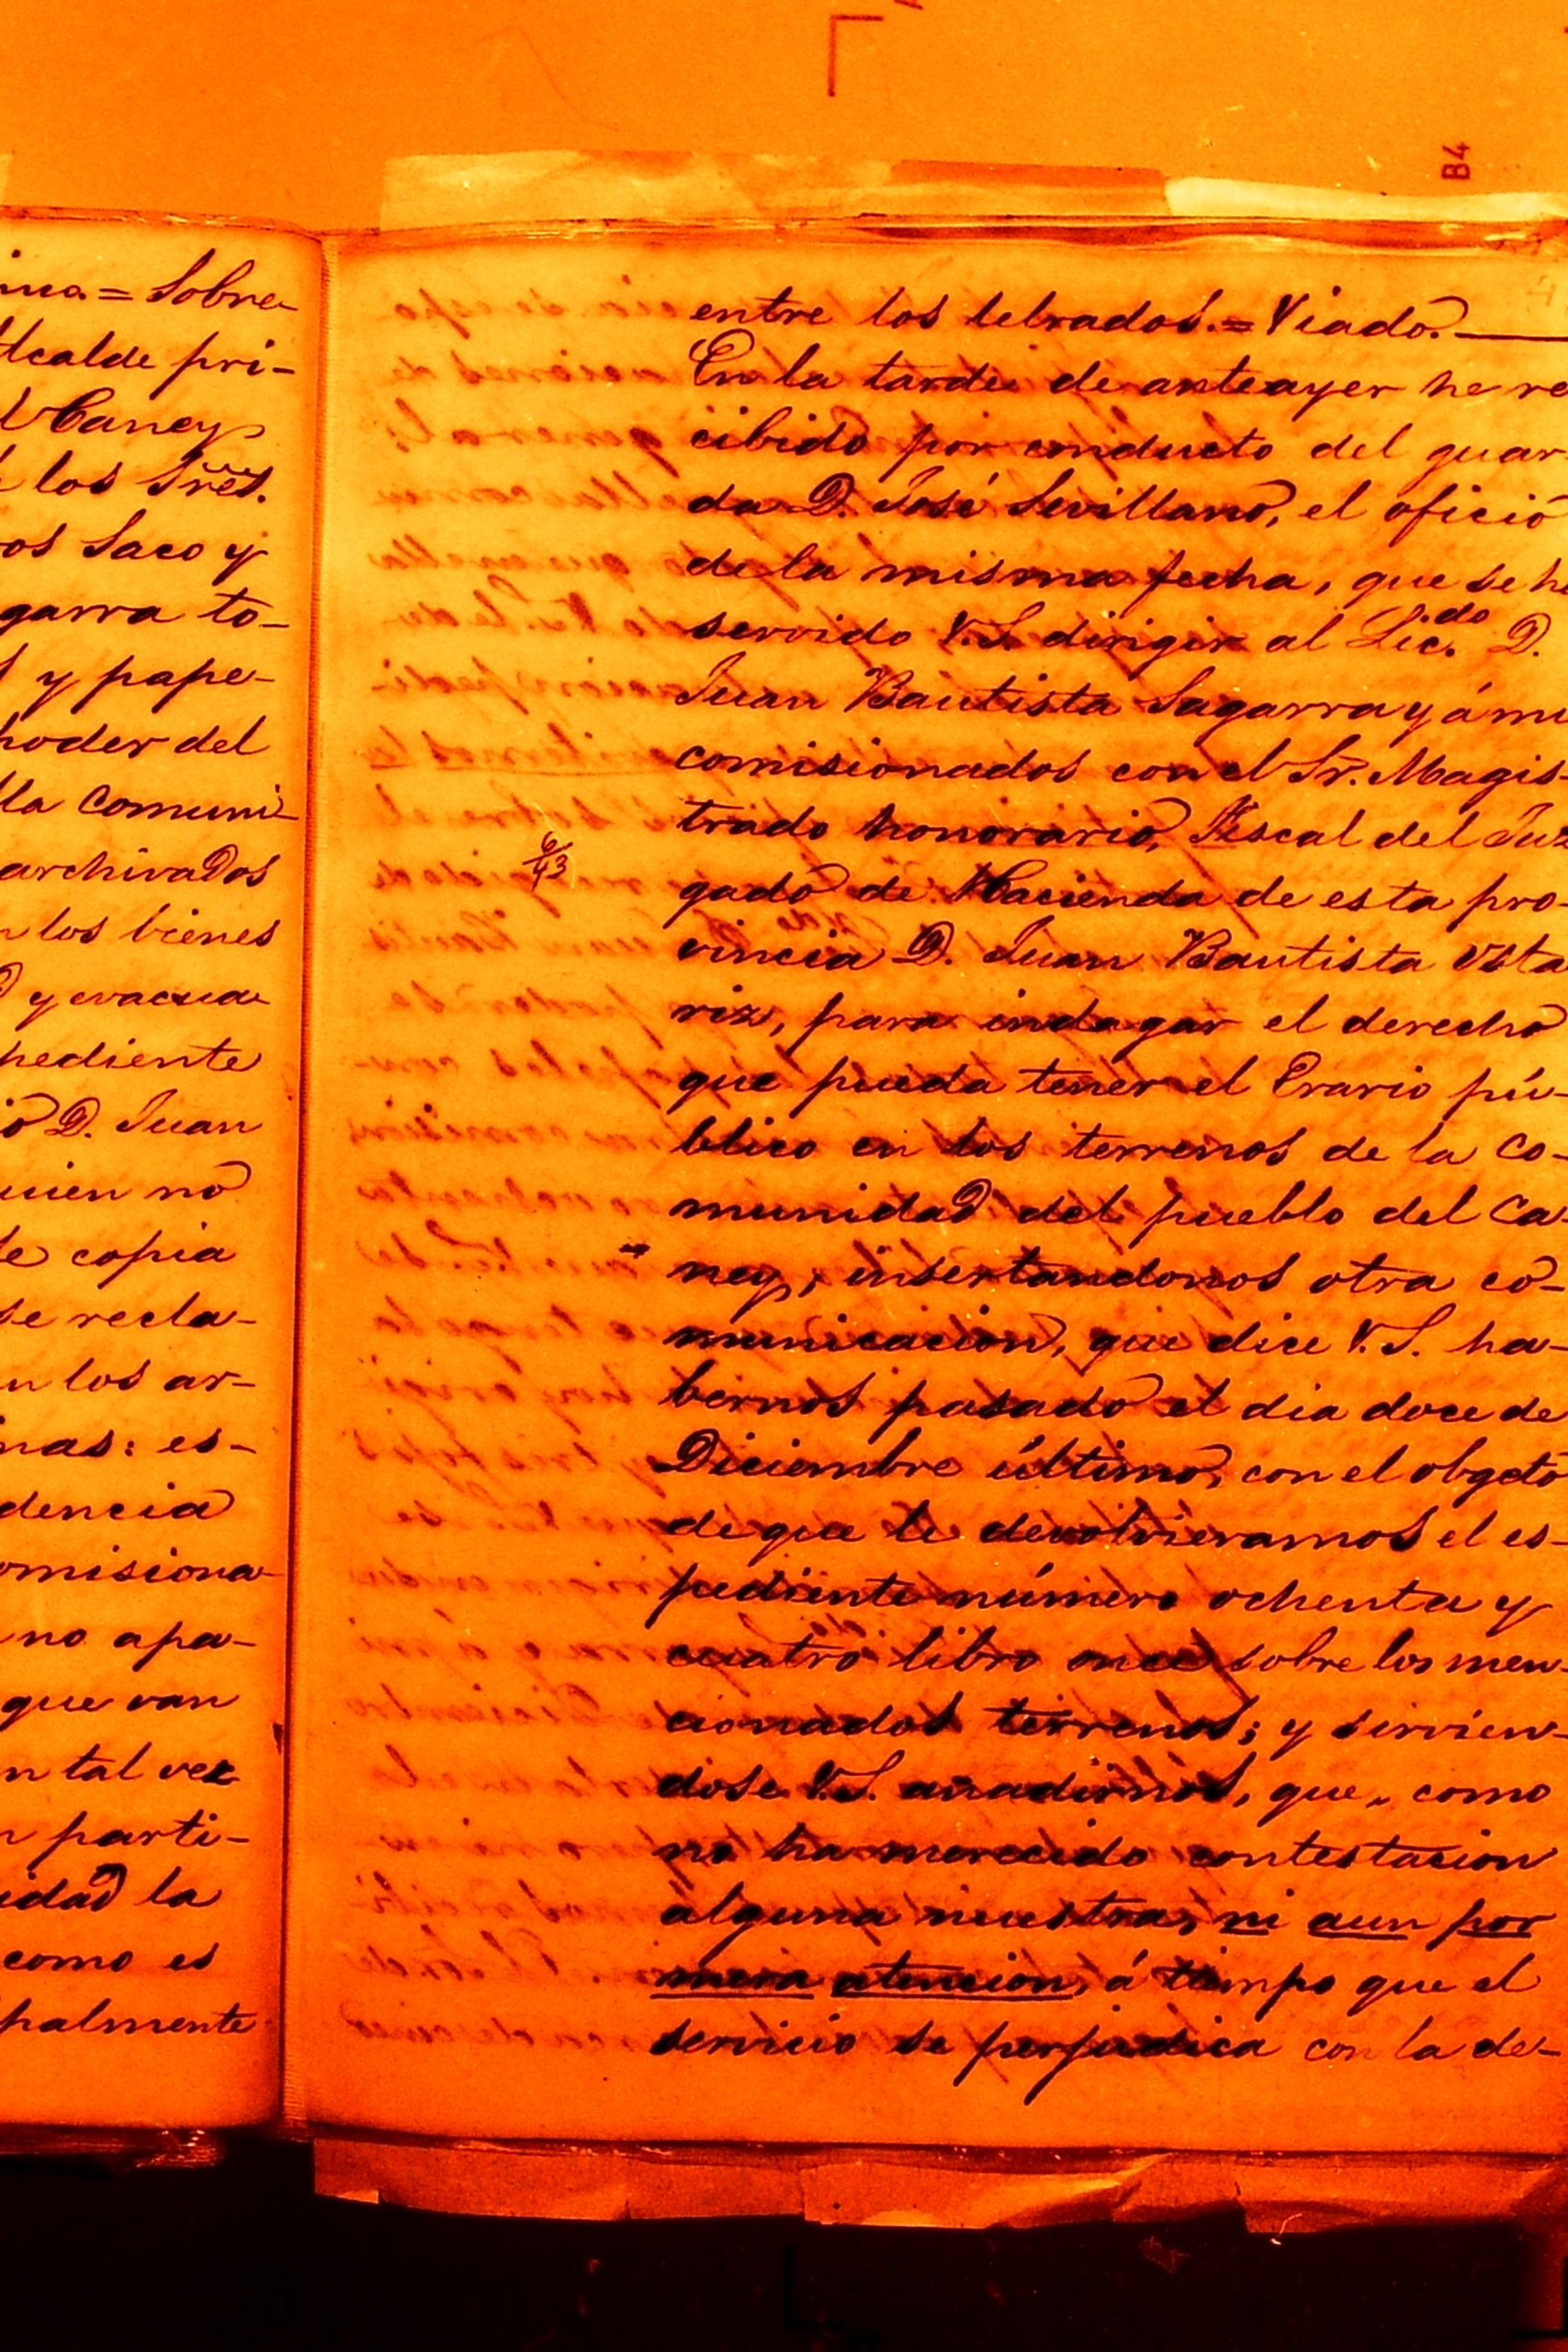 B4
ma. = Sobre
Alcalde pri-
l Caney
los Sres.
os Saco y
garra to-
y pape-
poder del
lla comuni-
archivados
n los bienes
y evacua
pediente
D. Juan
uien no
de copia
se recla-
n los ar-
nas: es-
dencia
omisiona-
no apa-
que van
n tal vez
n parti-
idad la
como es
palmente
entre los letrados. = Viado.
En la tarde de anteayer he re
cibido por conducto del guar-
da D. José Sevillano, el oficio
de la misma fecha, que se ha
servido V.S. dirigir al Lic.do D.
Juan Bautista Sagarra y á mi
comisionados con el Sr. Magis-
trado honorario, Fiscal del Juz
gado de Hacienda de esta pro-
vincia D. Juan Bautista Usta
riz, para indagar el derecho
que pueda tener el Erario pú-
blico en los terrenos de la co-
munidad del pueblo del Ca
ney, insertandonos otra co-
municacion, que dice V.S. ha-
bernos pasado el dia doce de
Diciembre último, con el obgeto
de que le devolvieramos el es-
pediente número ochenta y
cuatro libro once sobre los men-
cionados terrenos; y sirvien-
dose V.S. añadirnos, que, como
no ha merecido contestacion
alguna nuestra, ni aun por
mera atencion, á tiempo que el
servicio se perjudica con la de-